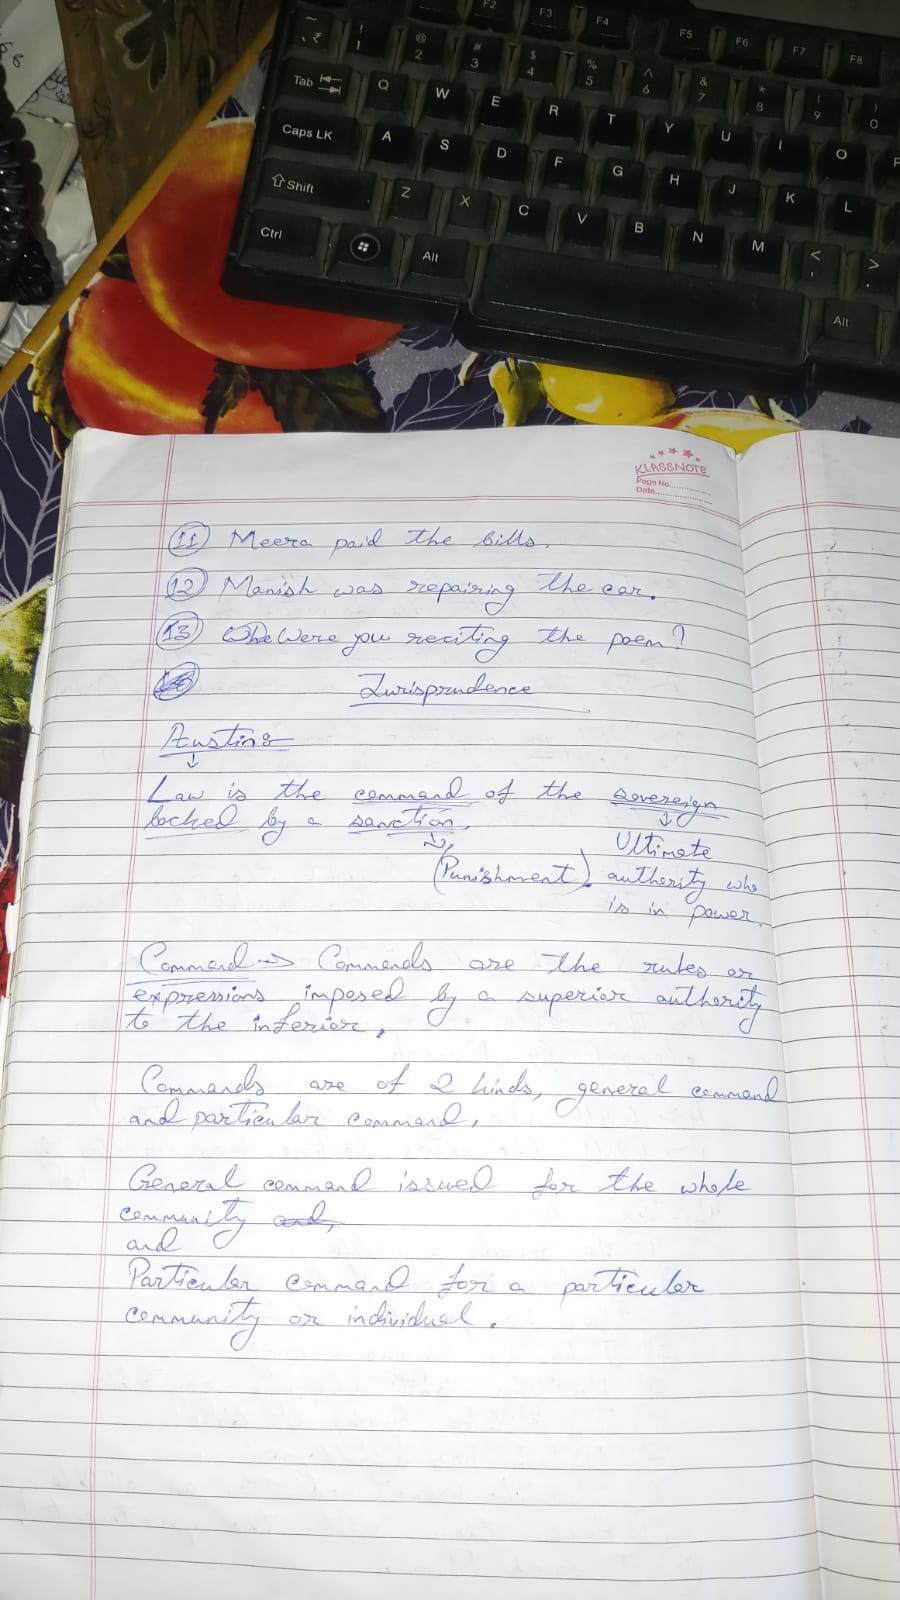 ~ ` ₹
! 1
@ 2
# 3
$ 4
% 5
^ 6
& 7
* 8
( 9
) 0
F2 F3 F4 F5 F6 F7 F8
Tab Q W E R T Y U I O
Caps LK A S D F G H J K L
Shift Z X C V B N M < , > .
Ctrl Alt Alt
KLASSNOTE
Page No.
Date
11 Meera paid the bills.
12 Manish was repairing the car.
13 Were you reciting the poem?
Jurisprudence
Austin :-
Law is the command of the sovereign
backed by a sanction.
Ultimate
(Punishment). authority who
is in power.
Command → Commands are the rules or
expressions imposed by a superior authority
to the inferior.
Commands are of 2 kinds, general command
and particular command.
General command issued for the whole
community and,
and
Particular command for a particular
community or individual.